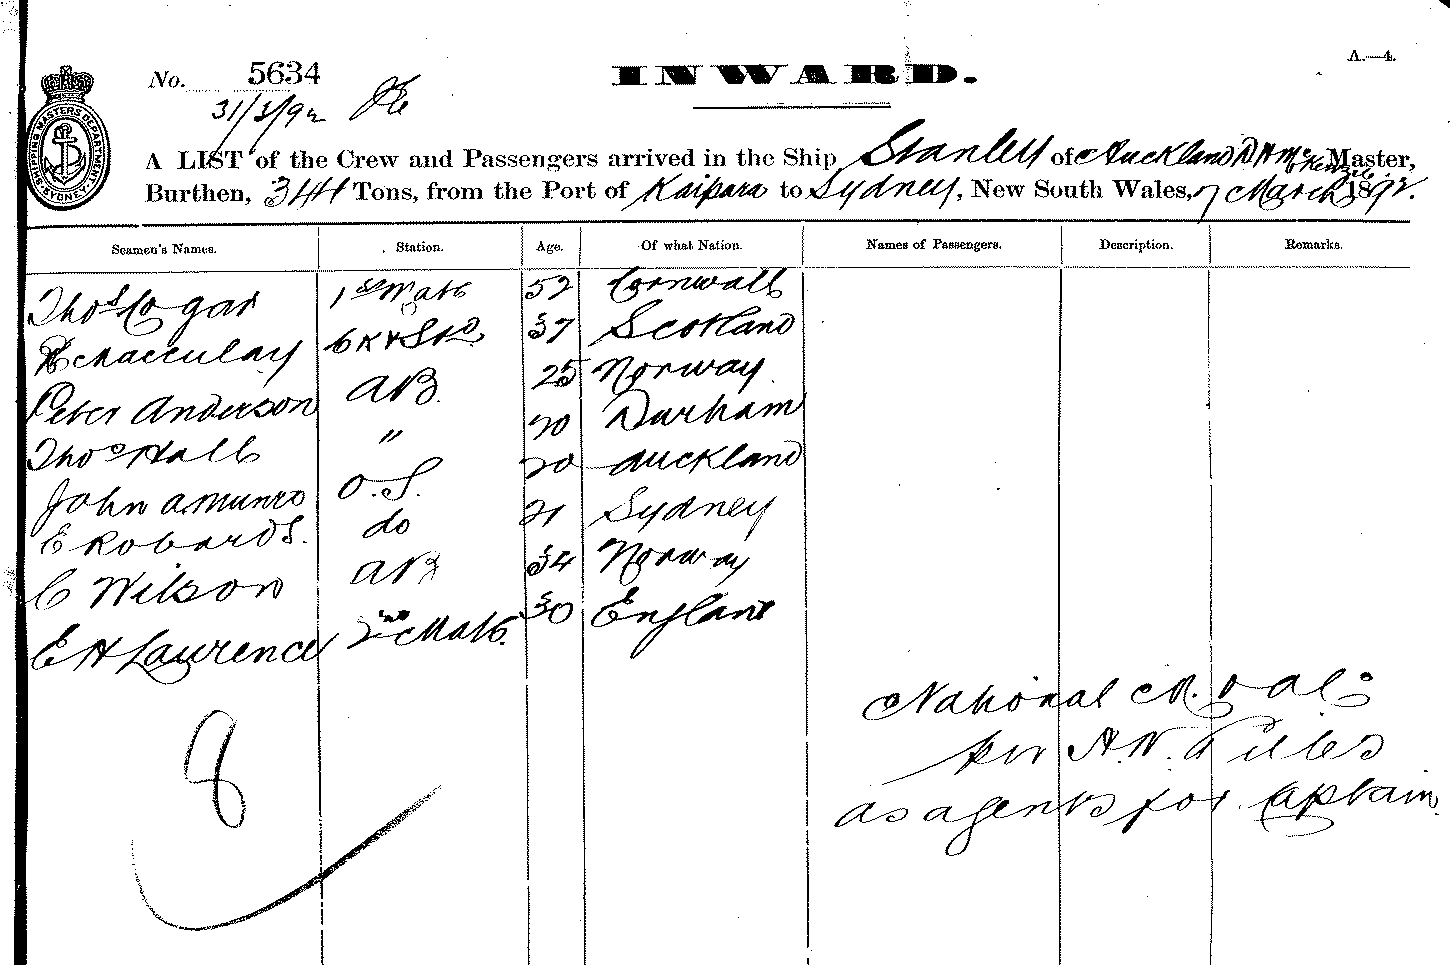 A.—4.
No. 5634
INWARD.
31/3/92
SHIPPING MASTERS DEPARTMENT SYDNEY
A LIST of the Crew and Passengers arrived in the Ship Stanley of Auckland D H McKenzie Master,
Burthen, 344 Tons, from the Port of Kaipara to Sydney, New South Wales, 7 March 1892.
Seamen's Names. Station. Age. Of what Nation. Names of Passengers. Description. Remarks.
Thos Cogar 1st Mate 52 Cornwall
Macculay Ck & Std 37 Scotland
Peter Anderson AB. 25 Norway
Thos Hall " 20 Durham
John A Munro O.S. 20 Auckland
E Robards. do 21 Sydney
C Wilson AB 34 Norway
E H Laurence 2nd Mate. 30 England
8
National
per A.N.
as agents for Captain